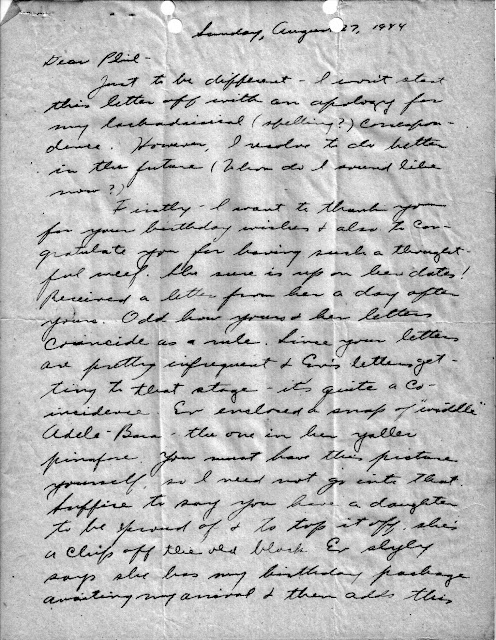 Sunday, August 27, 1944
Dear Phil-
Just to be different - I won't start
this letter off with an apology for
my lackadaisical (spelling?) correspon-
dence. However, I resolve to do better
in the future (Whom do I sound like
now?)
Firstly - I want to thank you
for your birthday wishes & also to con-
gratulate you for having such a thought-
ful wife. She sure is up on her dates!
Received a letter from her a day after
yours. Odd how yours & her letters
coincide as a rule. Since your letters
are pretty infrequent & Ev's letters get-
ting to that stage - it's quite a co-
incidence. Ev enclosed a snap of
Adele-Bara - the one in her yaller
pinafore. You must have this picture
yourself, so I need not go into that.
Suffice to say you have a daughter
to be proud of & to top it off, she's
a chip off the old block. Ev slyly
says she has my birthday package
awaiting my arrival & then adds this